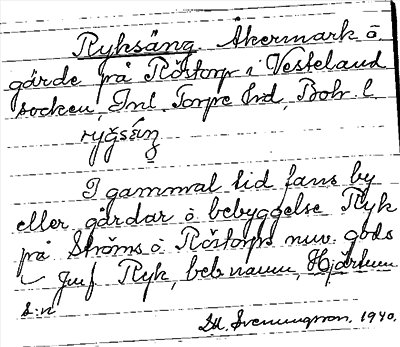 Ryksäng. Åkermark å
gärde på Röstorp i Vesteland
socken, Inl. Torpe hrd, Boh. l.
ryg̃sä́ŋ
I gammal tid fans by
eller gårdar å bebyggelse Ryk
på Ströms å Röstorps nuv. gods
Jmf Ryk, beb namn, Hjärtum
s:n
D.A. Svenungsson, 1940.